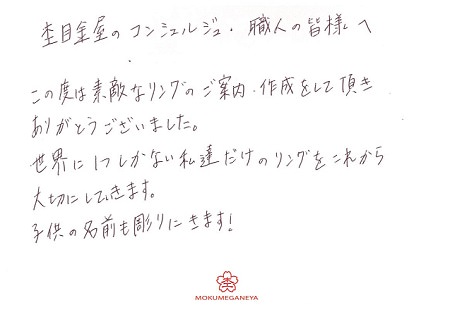 杢目金屋のコンシェルジュ・職人の皆様へ
この度は素敵なリングのご案内・作成をして頂き
ありがとうございました。
世界に1つしかない私達だけのリングをこれから
大切にしていきます。
子供の名前も彫りにきます!
杢
MOKUMEGANEYA